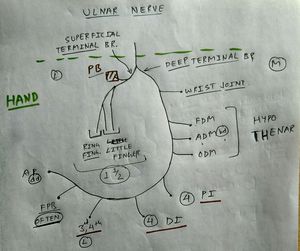 ULNAR NERVE
SUPERFICIAL
TERMINAL BR.
DEEP TERMINAL BR
L
PB
M
WRIST JOINT
HAND
FDM
ADM
ODM
HYPO
THENAR
RING LITTLE
FING. FINGER
1 1/2
AP
dd
FPB
OFTEN
3, 4th
L
4 DI
4 PI